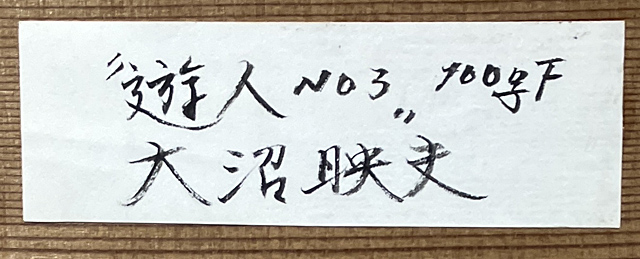 〃遊人 NO3〃 100号F
大沼映夫